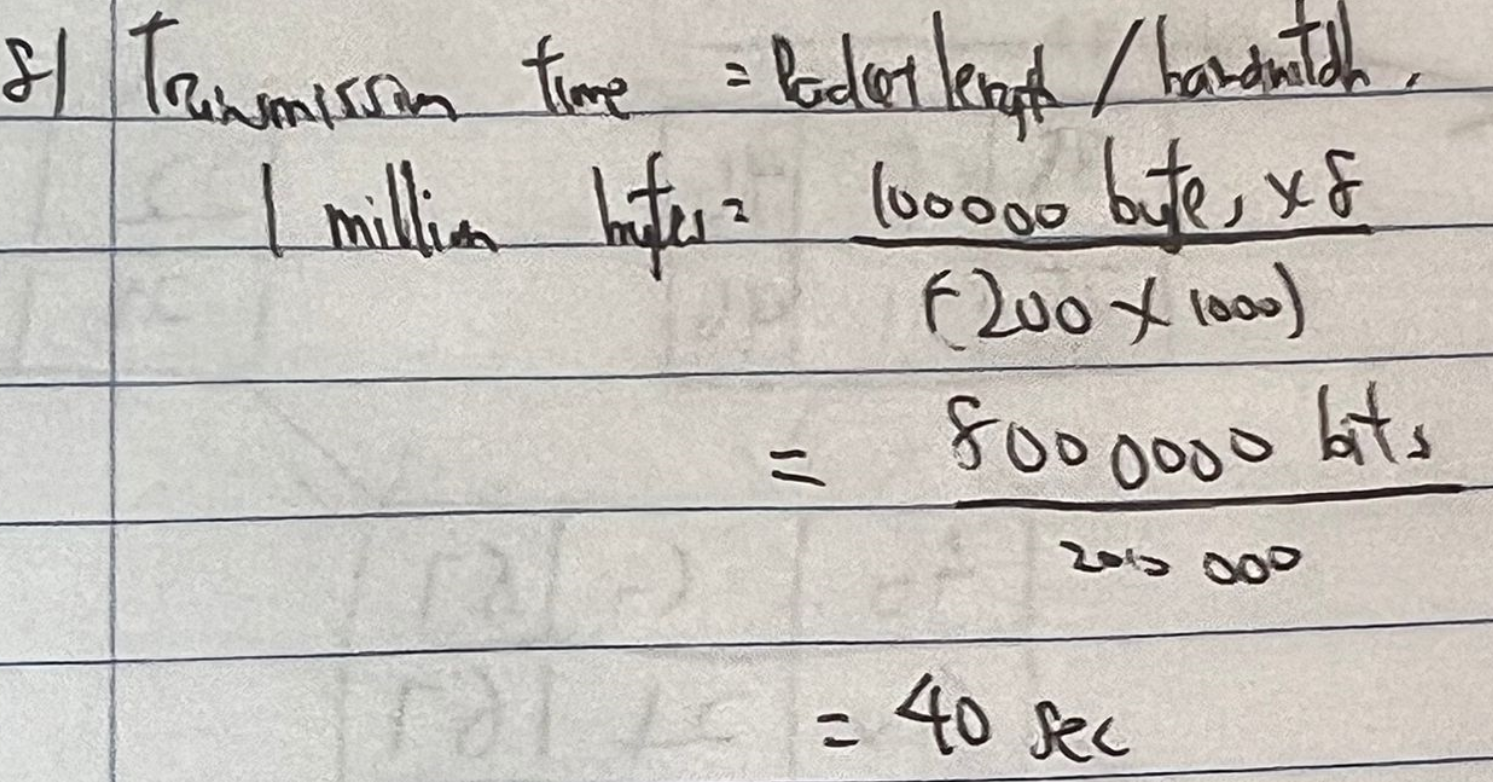 8) Transmission time = Packet length / bandwidth.
1 million bytes = 100000 bytes x 8
(200 x 1000)
= 8000000 bits
200 000
= 40 sec